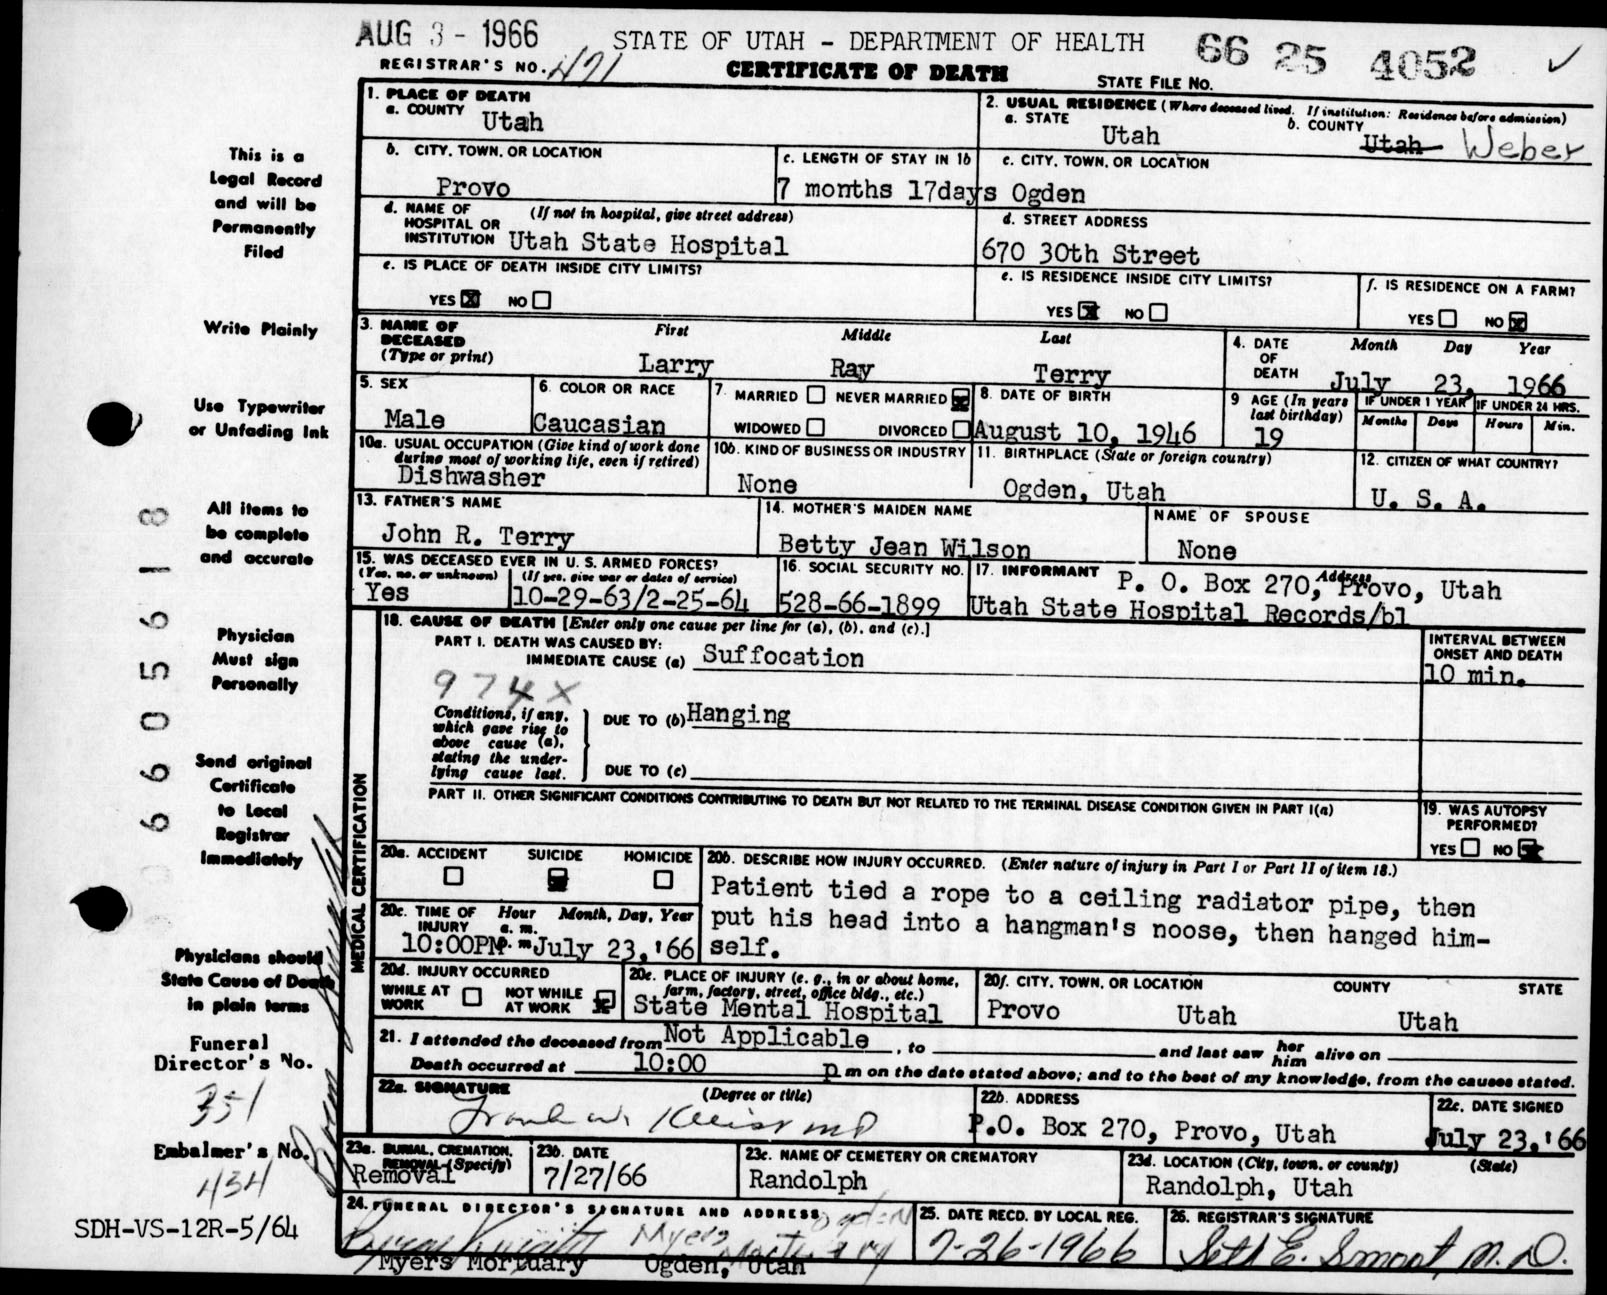 AUG 3 - 1966
STATE OF UTAH - DEPARTMENT OF HEALTH
66 25 4052
REGISTRAR'S NO. 471
CERTIFICATE OF DEATH
STATE FILE NO.
1. PLACE OF DEATH
a. COUNTY Utah
2. USUAL RESIDENCE (Where deceased lived. If institution: Residence before admission)
a. STATE Utah
b. COUNTY Utah Weber
b. CITY, TOWN, OR LOCATION
Provo
c. LENGTH OF STAY IN 1b
7 months 17days
c. CITY, TOWN, OR LOCATION
Ogden
d. NAME OF HOSPITAL OR INSTITUTION (If not in hospital, give street address)
Utah State Hospital
d. STREET ADDRESS
670 30th Street
e. IS PLACE OF DEATH INSIDE CITY LIMITS?
YES X NO
e. IS RESIDENCE INSIDE CITY LIMITS?
YES X NO
f. IS RESIDENCE ON A FARM?
YES NO X
3. NAME OF DECEASED (Type or print)
First Middle Last
Larry Ray Terry
4. DATE OF DEATH Month Day Year
July 23, 1966
5. SEX
Male
6. COLOR OR RACE
Caucasian
7. MARRIED NEVER MARRIED X
WIDOWED DIVORCED
8. DATE OF BIRTH
August 10, 1946
9 AGE (In years last birthday)
19
IF UNDER 1 YEAR
Months Days
IF UNDER 24 HRS.
Hours Min.
10a. USUAL OCCUPATION (Give kind of work done during most of working life, even if retired)
Dishwasher
10b. KIND OF BUSINESS OR INDUSTRY
None
11. BIRTHPLACE (State or foreign country)
Ogden, Utah
12. CITIZEN OF WHAT COUNTRY?
U. S. A.
13. FATHER'S NAME
John R. Terry
14. MOTHER'S MAIDEN NAME
Betty Jean Wilson
NAME OF SPOUSE
None
15. WAS DECEASED EVER IN U. S. ARMED FORCES?
(Yes, no, or unknown) (If yes, give war or dates of service)
Yes 10-29-63/2-25-64
16. SOCIAL SECURITY NO.
528-66-1899
17. INFORMANT Address
P. O. Box 270, Provo, Utah
Utah State Hospital Records/bl
MEDICAL CERTIFICATION
18. CAUSE OF DEATH [Enter only one cause per line for (a), (b), and (c).]
PART I. DEATH WAS CAUSED BY:
IMMEDIATE CAUSE (a) Suffocation
INTERVAL BETWEEN ONSET AND DEATH
10 min.
974X
Conditions, if any, which gave rise to above cause (a), stating the underlying cause last.
DUE TO (b) Hanging
DUE TO (c)
PART II. OTHER SIGNIFICANT CONDITIONS CONTRIBUTING TO DEATH BUT NOT RELATED TO THE TERMINAL DISEASE CONDITION GIVEN IN PART I(a)
19. WAS AUTOPSY PERFORMED?
YES NO X
20a. ACCIDENT SUICIDE X HOMICIDE
20b. DESCRIBE HOW INJURY OCCURRED. (Enter nature of injury in Part I or Part II of item 18.)
Patient tied a rope to a ceiling radiator pipe, then
put his head into a hangman's noose, then hanged him-
self.
20c. TIME OF INJURY Hour Month, Day, Year
a. m.
10:00PM p. m July 23,'66
20d. INJURY OCCURRED
WHILE AT WORK NOT WHILE AT WORK X
20e. PLACE OF INJURY (e. g., in or about home, farm, factory, street, office bldg., etc.)
State Mental Hospital
20f. CITY, TOWN, OR LOCATION COUNTY STATE
Provo Utah Utah
21. I attended the deceased from Not Applicable , to and last saw her him alive on
Death occurred at 10:00 p m on the date stated above; and to the best of my knowledge, from the causes stated.
22a. SIGNATURE (Degree or title)
MD
22b. ADDRESS
P.O. Box 270, Provo, Utah
22c. DATE SIGNED
July 23,'66
23a. BURIAL, CREMATION, REMOVAL (Specify)
Removal
23b. DATE
7/27/66
23c. NAME OF CEMETERY OR CREMATORY
Randolph
23d. LOCATION (City, town, or county) (State)
Randolph, Utah
24. FUNERAL DIRECTOR'S SIGNATURE AND ADDRESS
Myers Mortuary Ogden
Myers Mortuary Ogden, Utah
25. DATE RECD. BY LOCAL REG.
7-26-1966
26. REGISTRAR'S SIGNATURE
Seth E. Smoot, M. D.
This is a
Legal Record
and will be
Permanently
Filed
Write Plainly
Use Typewriter
or Unfading Ink
All items to
be complete
and accurate
Physician
Must sign
Personally
Send original
Certificate
to Local
Registrar
Immediately
Physicians should
State Cause of Death
in plain terms
Funeral
Director's No.
351
Embalmer's No.
434
SDH-VS-12R-5/64
6605618